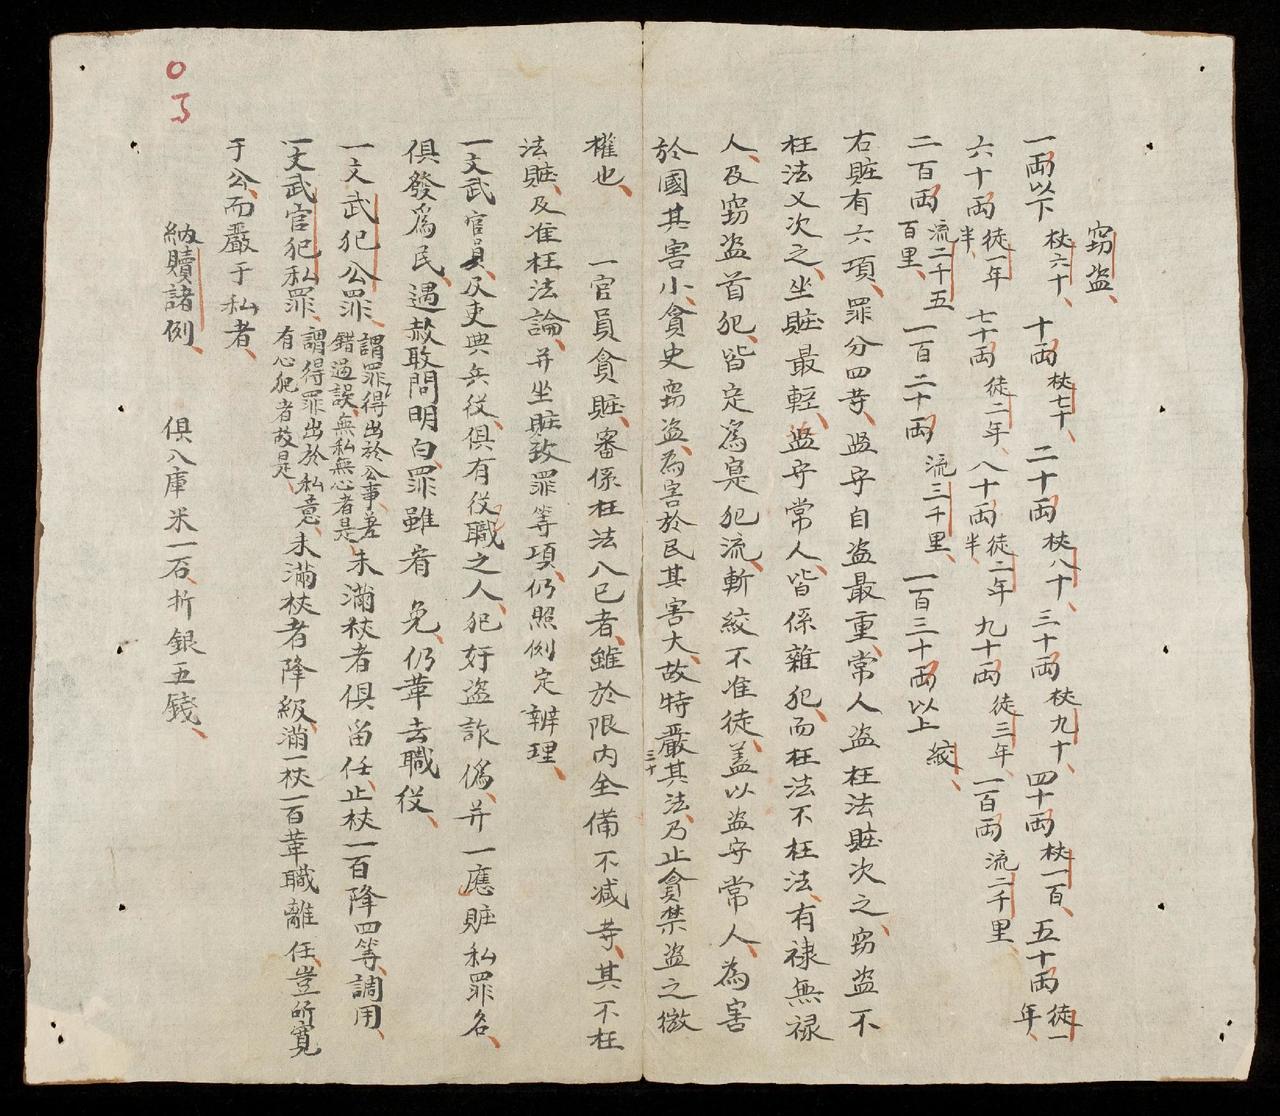 窃盗
一両以下 杖六十 十両 杖七十 二十両 杖八十 三十両 杖九十 四十両 杖一百 五十両 徒一年
六十両 徒一年半 七十両 徒二年 八十両 徒二年半 九十両 徒三年 一百両 流二千里
二百両 流二千五百里 一百二十両 流三千里 一百三十両以上 絞
右賍有六項罪分四等监守自盗最重常人盗枉法賍次之窃盗不
枉法又次之坐賍最輕监守常人皆係雜犯而枉法不枉法有禄無禄
人及窃盗首犯皆定為寔犯流斬絞不准徒盖以盗守常人為害
於國其害小貪吏窃盗為害於民其害大故特嚴其法乃止貪禁盗之微
三十
權也 一官員貪賍審係枉法八已者雖於限内全備不减等其不枉
法賍及准枉法論并坐賍致罪等項仍照例定辨理
一文武官員及吏典兵役俱有役職之人犯奸盗詐僞并一應賍私罪名
俱發為民遇赦敢問明白罪雖宥免仍革去職役
一文武犯公罪 謂罪得出於公事差錯過誤無私無心者是 未滿杖者俱留任止杖一百降四等調用
一文武官犯私罪 謂得罪出於私意有心犯者故是 未滿杖者降級滿一杖一百革職離任豈所寬
于公而嚴于私者
納贖諸例 俱入庫米一石折銀五錢